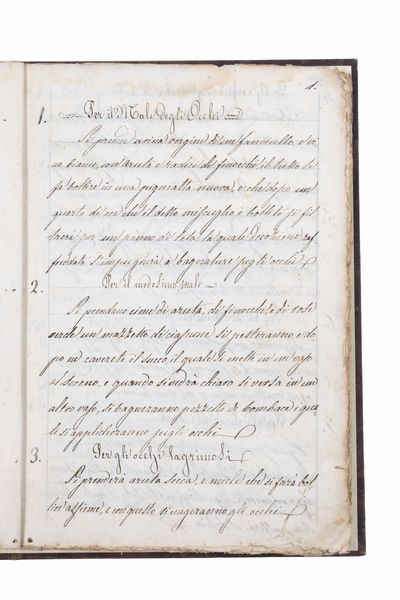 1.
1. Per il Male degli Occhi
Si prende urina vergine di un fanciullo, e vi
no bianco, con aruta e radici di finocchi il tutto si
fa bollire in una pignatta nuova, e che dopo un
quarto di ora che il detto miscuglio è bollito si fil
trerà per un panno di tela la quale Decozione raf
freddata s'impiegherà a bagnature sugli occhi
2. Per il medesimo male
Si prendano cime di aruta, di finocchi e di rose
verde un mazzetto di ciascuno si pesteranno e do
po ne caverete il succo, il quale si mette in un vaso
al sereno, e quando si vedrà chiaro si versa in un
altro vaso, si bagneranno pezzetti di bombace i qua
li si applicheranno sugli occhi
3. Per gli occhi lagrimosi
Si prenderà aruta secca e miele che si farà bol
lire assieme, e con questo si ungeranno gli occhi